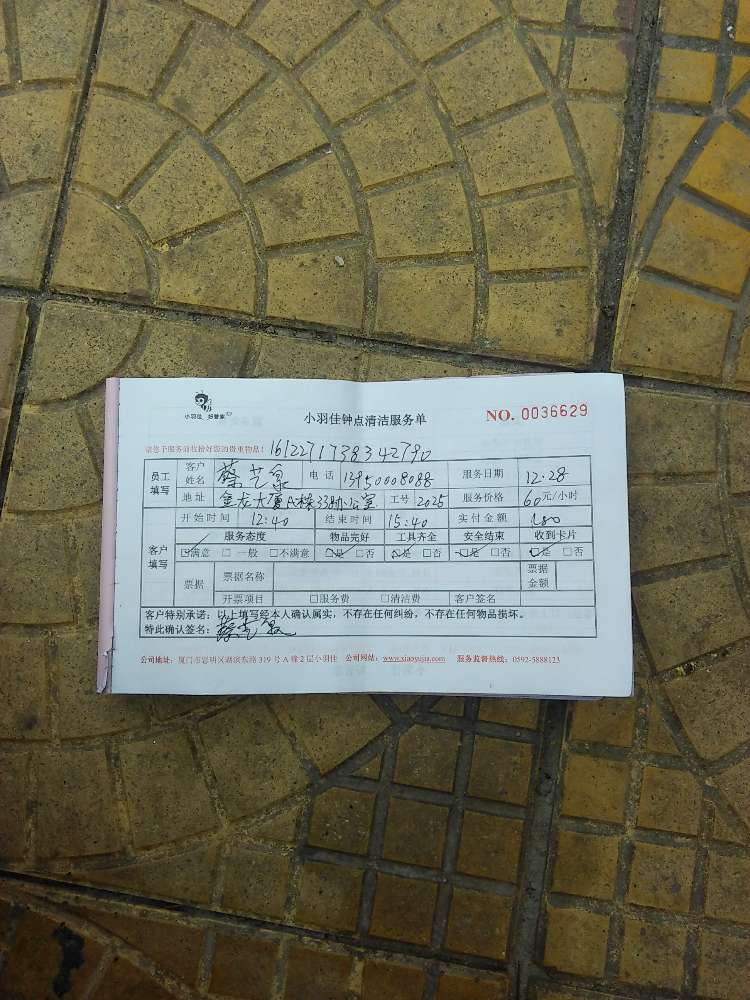 小羽佳 好管家
小羽佳钟点清洁服务单
NO. 0036629
请您于服务前收拾好您的贵重物品!
1612271738342790
员工填写 客户姓名 蔡艺泉 电话 13950008088 服务日期 12.28
地址 金龙大厦A栋33办公室 工号 2025 服务价格 60元/小时
客户填写 开始时间 12:40 结束时间 15:40 实付金额 180
服务态度 物品完好 工具齐全 安全结束 收到卡片
☑满意 □一般 □不满意 ☑是 □否 ☑是 □否 ☑是 □否 ☑是 □否
票据 票据名称 票据金额
开票项目 □服务费 □清洁费 客户签名
客户特别承诺:以上填写经本人确认属实,不存在任何纠纷,不存在任何物品损坏。
特此确认签名: 蔡艺泉
公司地址:厦门市思明区湖滨东路319号A栋2层小羽佳 公司网站:www.xiaoyujia.com 服务监督热线:0592-5888123